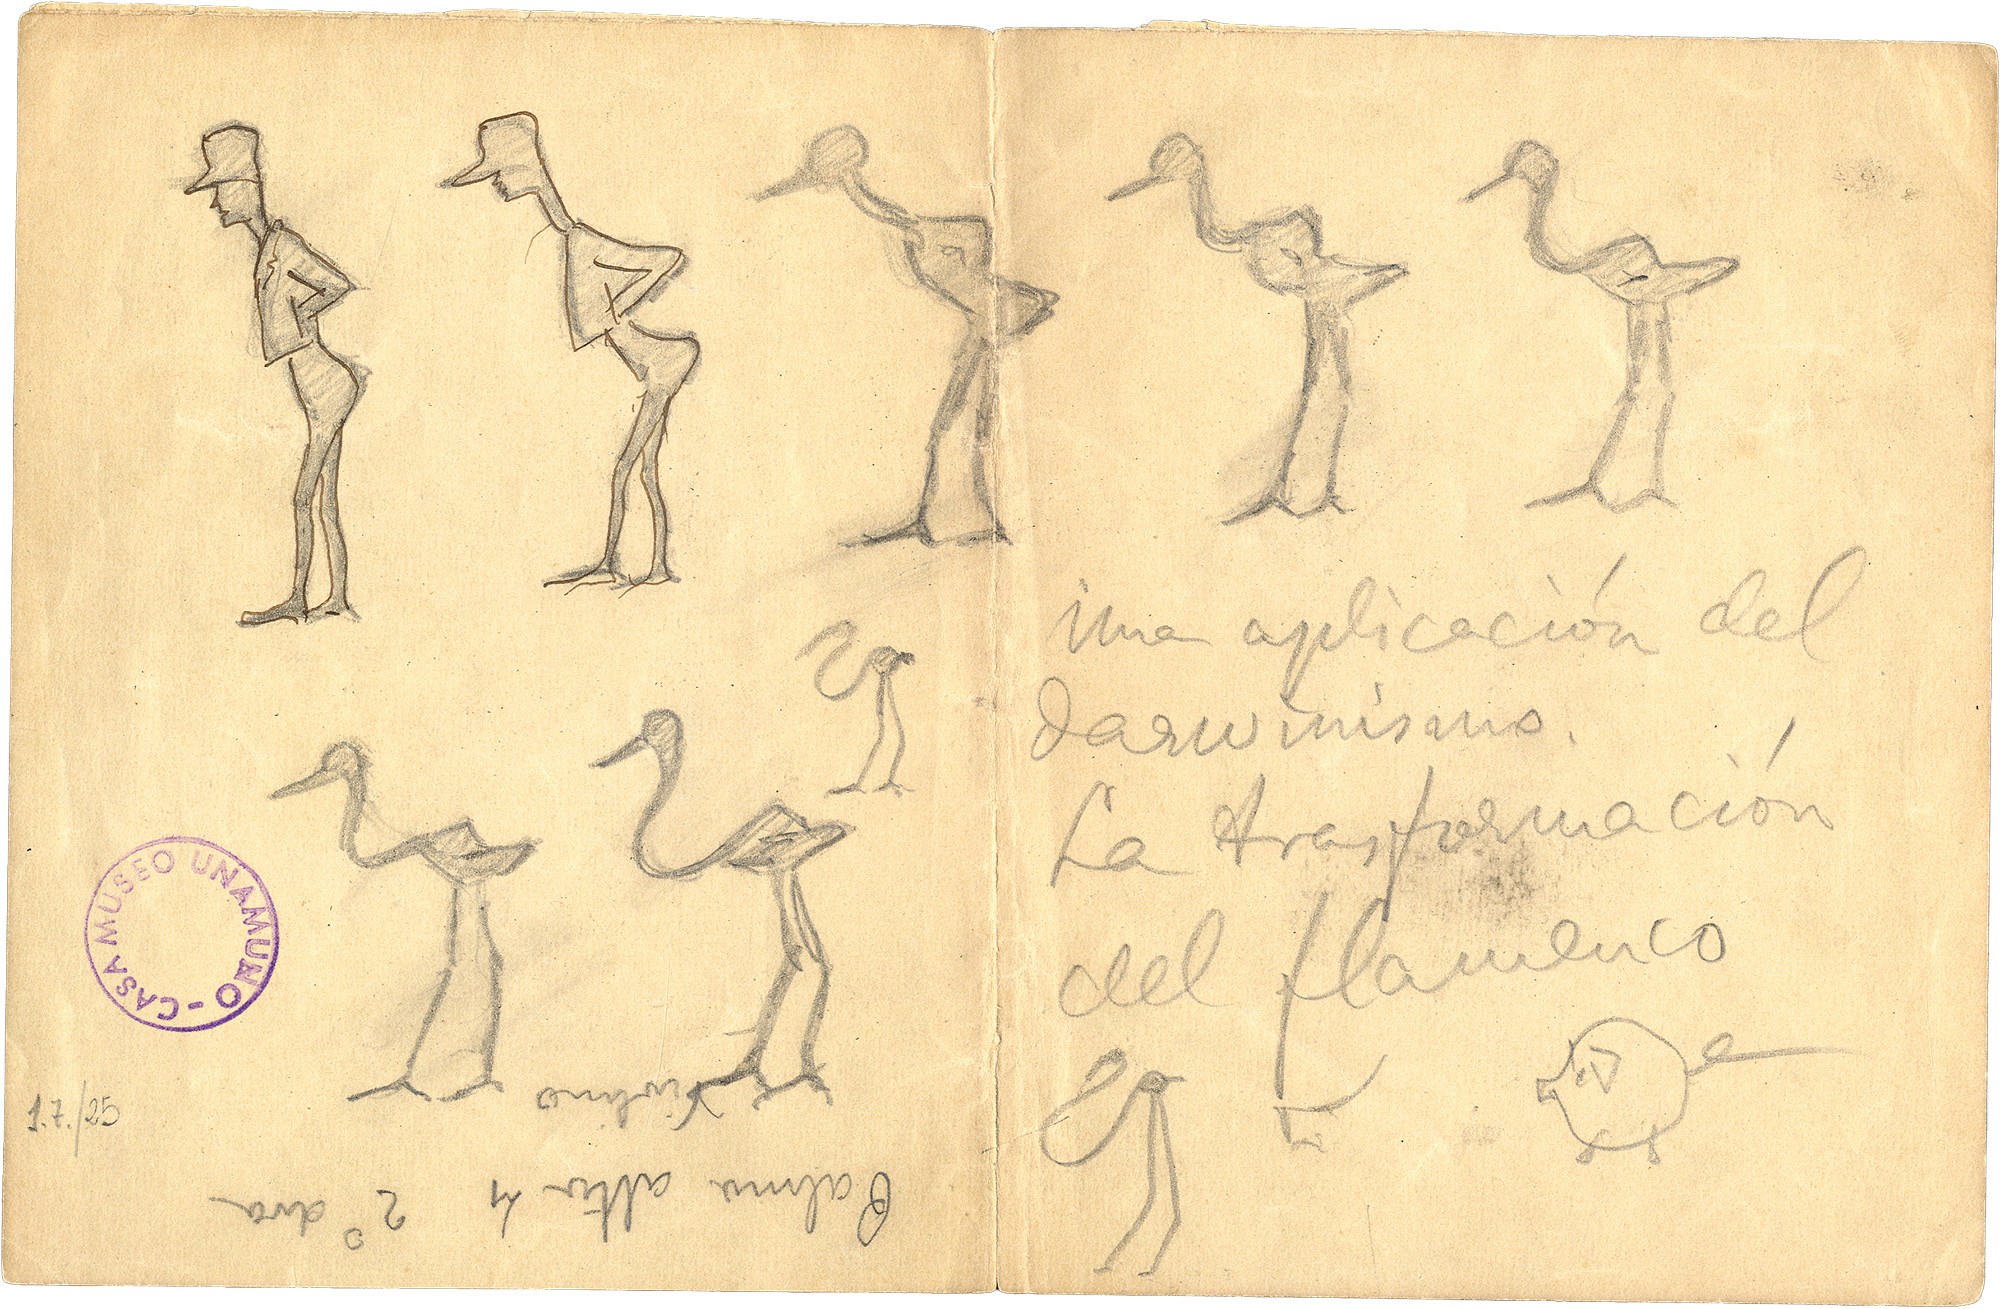 una aplicación del
darwinismo.
La trasformación
del flamenco
CASA MUSEO UNAMUNO -
1.7./25
Palma alta 4 2º dra